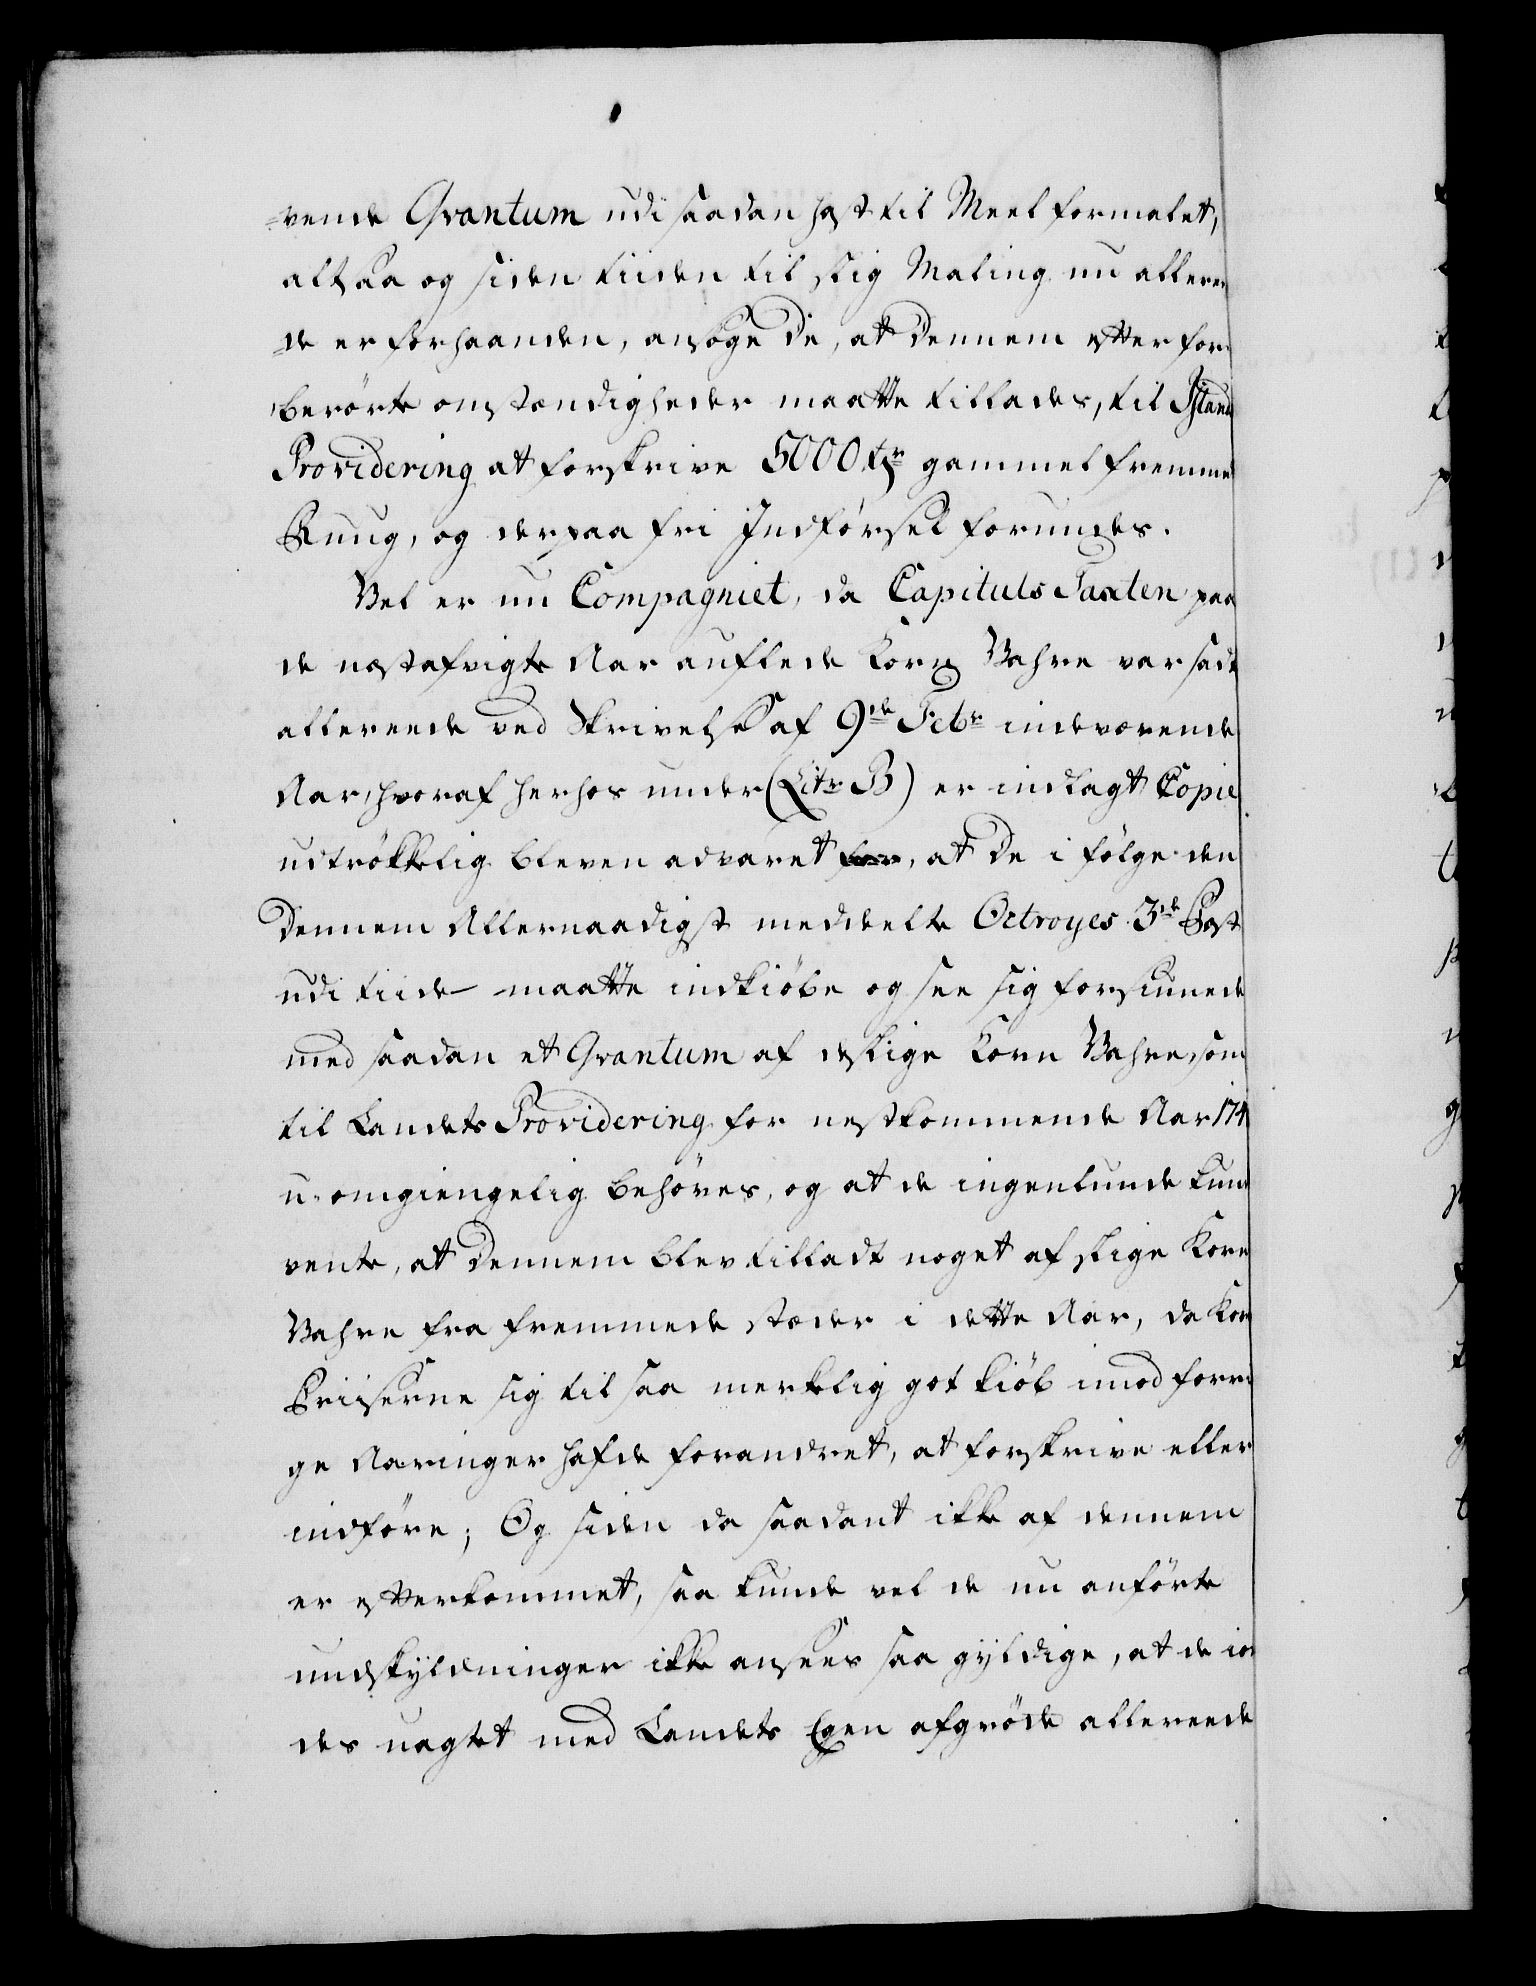 =vende Qvantum udi saadan hast til Meel formalet,
altsaa og siden tiiden til slig Maling nu alleree
=de er forhaanden, ansøge De, at Dennem efter for
berørte omstændigheder maatte tillades, til Islands
Providering at forskrive 5000 tr gammel fremmed
Ruug, og derpaa fri Indførsel forundes.
Vel er nu Compagniet, da Capituls Taxten paa
de næstafvigte Aar auflede Korn Vahre var sadt
allereede ved Skrivelse af 9de Febr indeværende
Aar, hvoraf herhos under (Litr B) er indlagt Copie
udtrøkkelig bleven advaret, at De i følge den
Dennem Allernaadigst meddeelte Octroyes 3de Post
udi tiide maatte indkiøbe og see sig forsiunede
med saadan et Qvantum af deslige Korn Vahre, som
til Landets Providering for nestkommende Aar 174
u-omgiengelig behøves, og at de ingenlunde kund
vente, at Dennem blev tilladt noget af slige Korn
Vahre fra fremmede stæder i dette Aar, da Korn
Priiserne sig til saa merkelig got kiøb imod forri
ge Aaringer hafde forandret, at forskrive eller
indføre; Og siden da saadant ikke af dennem
er efterkommet, saa kunde vel de nu anførte
undskyldninger ikke ansees saa gyldige, at de io
des uagtet med Landets Egen afgrøde allereede